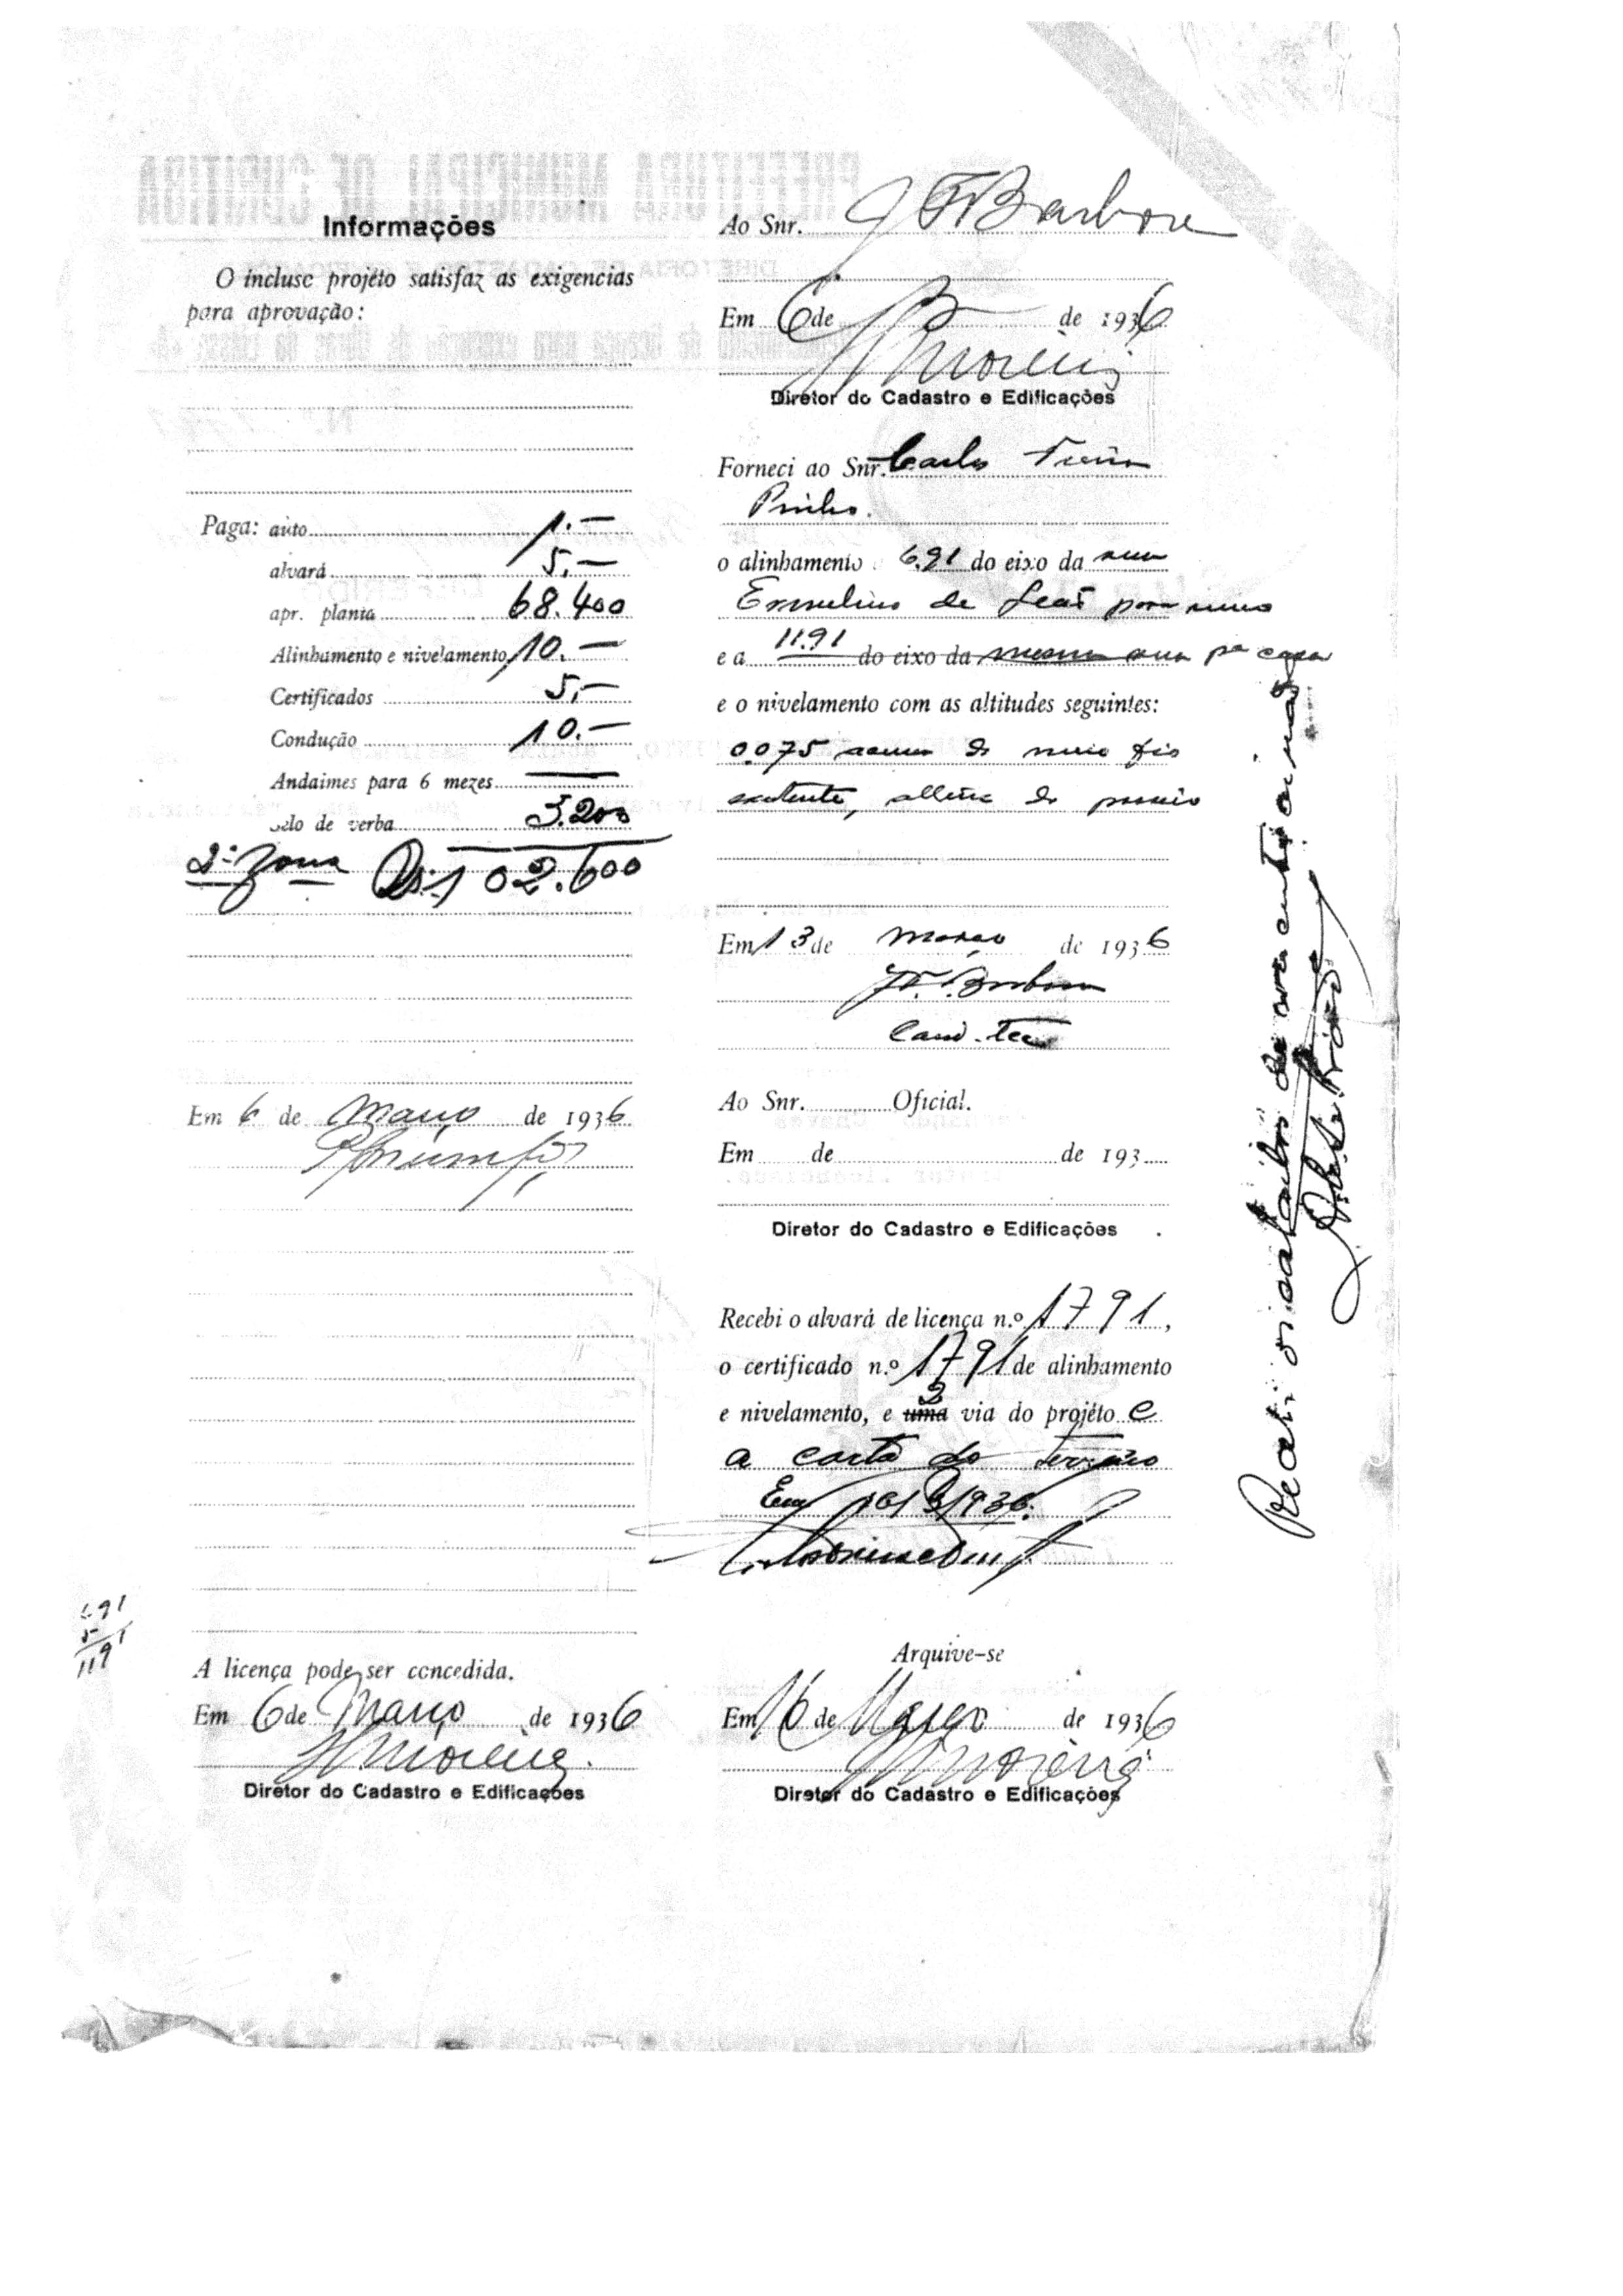 Informações
O incluso projéto satisfaz as exigencias
para aprovação:
Paga: auto 1.—
alvará 5.—
apr. planta 68.400
Alinhamento e nivelamento 10.—
Certificados 5,—
Condução 10.—
Andaimes para 6 mezes —
selo de verba 3.200
2ª zona Rs. 102.600
Em 6 de Março de 1936
A licença pode ser concedida.
Em 6 de Março de 1936
Moreira
Diretor do Cadastro e Edificações
6.91
5
11.91
Ao Snr. J F Barbosa
Em 6 de 3 de 1936
Moreira
Diretor do Cadastro e Edificações
Forneci ao Snr. Carlos
o alinhamento 6.91 do eixo da rua
Ermelino de Leão para muro
e a 11.91 do eixo da mesma rua pª casa
e o nivelamento com as altitudes seguintes:
0.075 acima do meio fio
existente, do passeio
Em 13 de março de 1936
J F. Barbosa
Ao Snr. Oficial.
Em de de 193
Diretor do Cadastro e Edificações
Recebi o alvará de licença n.º 1791,
o certificado n.º 1791 de alinhamento
e nivelamento, e uma 2 via do projéto e
a carta do terreno
Em 16/3/936.
Arquive-se
Em 16 de Março de 1936
Moreira
Diretor do Cadastro e Edificações